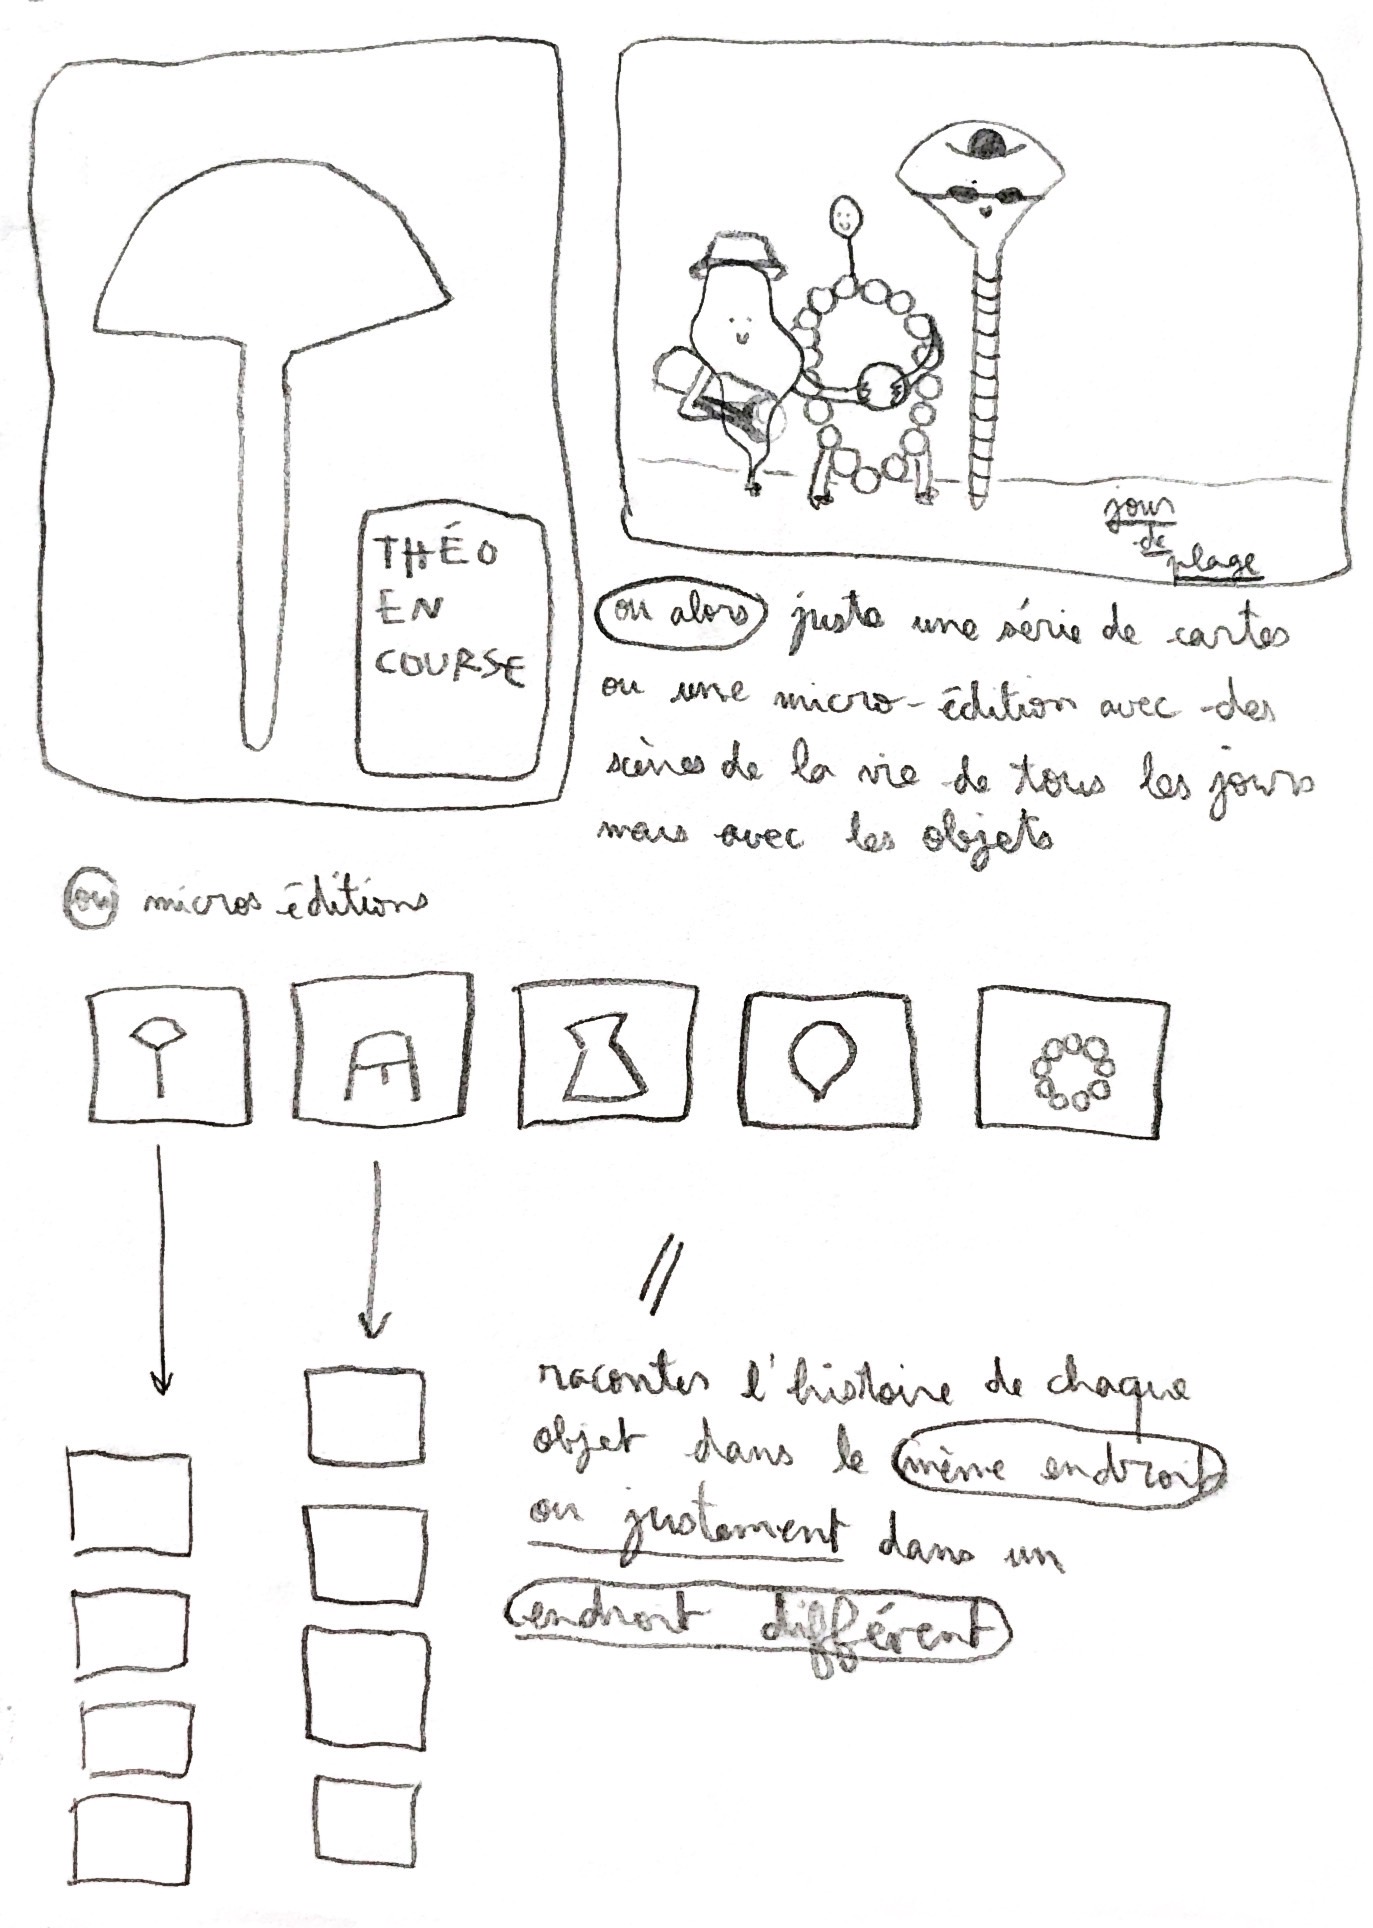 THÉO
EN
COURSE
jour
de
plage
ou alors juste une série de cartes
ou une micro-édition avec des
scènes de la vie de tous les jours
mais avec les objets
ou micros éditions
//
raconter l'histoire de chaque
objet dans le même endroit
ou justement dans un
endroit différent